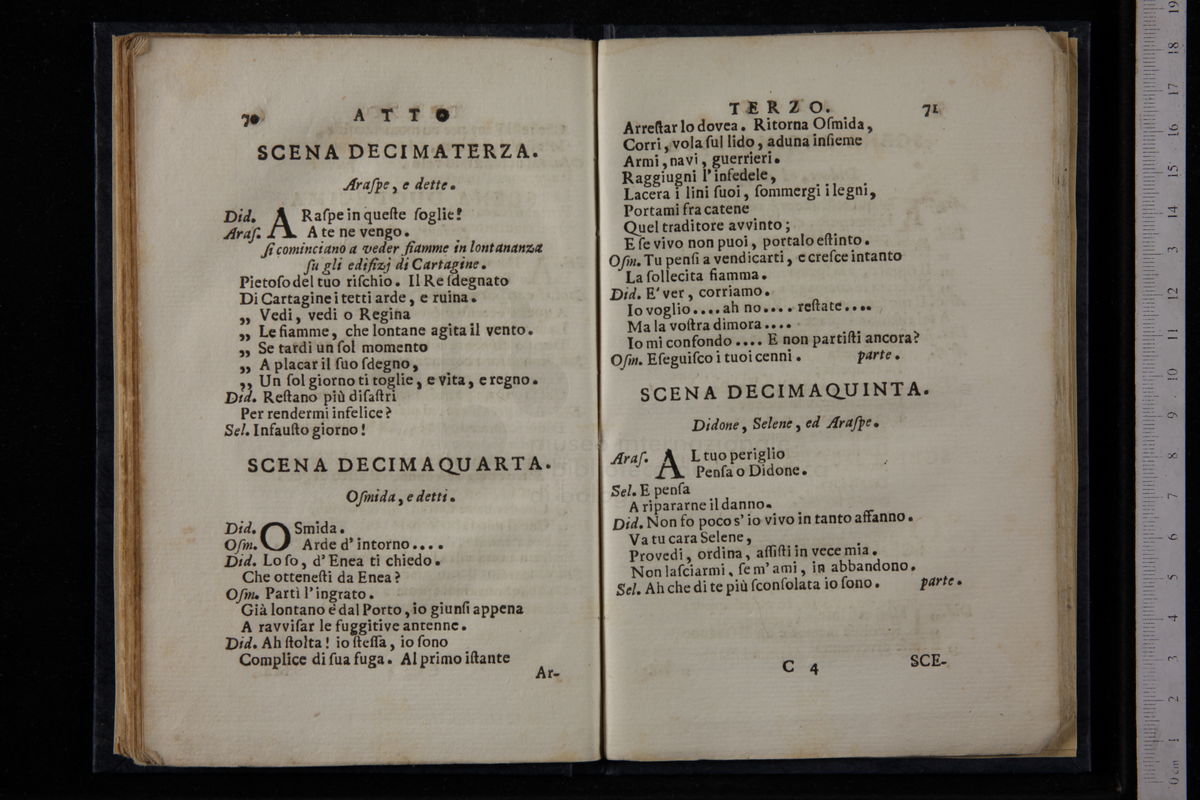 70 ATTO
SCENA DECIMATERZA.
Araſpe, e dette.
Did. ARaſpe in queſte ſoglie!
Araſ. A te ne vengo.
ſi cominciano a veder fiamme in lontananza
ſu gli edifizj di Cartagine.
Pietoſo del tuo riſchio. Il Re ſdegnato
Di Cartagine i tetti arde, e ruina.
„ Vedi, vedi o Regina
„ Le fiamme, che lontane agita il vento.
„ Se tardi un ſol momento
„ A placar il ſuo ſdegno,
„ Un ſol giorno ti toglie, e vita, e regno.
Did. Reſtano più diſaſtri
Per rendermi infelice?
Sel. Infauſto giorno!
SCENA DECIMAQUARTA.
Oſmida, e detti.
Did. OSmida.
Oſm. Arde d' intorno....
Did. Lo ſo, d' Enea ti chiedo.
Che otteneſti da Enea?
Oſm. Partì l' ingrato.
Già lontano è dal Porto, io giunſi appena
A ravviſar le fuggitive antenne.
Did. Ah ſtolta! io ſteſſa, io ſono
Complice di ſua fuga. Al primo iſtante
Ar-
TERZO. 71
Arreſtar lo dovea. Ritorna Oſmida,
Corri, vola ſul lido, aduna inſieme
Armi, navi, guerrieri.
Raggiugni l' infedele,
Lacera i lini ſuoi, ſommergi i legni,
Portami fra catene
Quel traditore avvinto;
E ſe vivo non puoi, portalo eſtinto.
Oſm. Tu penſi a vendicarti, e creſce intanto
La ſollecita fiamma.
Did. E' ver, corriamo.
Io voglio.... ah no.... reſtate....
Ma la voſtra dimora....
Io mi confondo.... E non partiſti ancora?
Oſm. Eſeguiſco i tuoi cenni. parte.
SCENA DECIMAQUINTA.
Didone, Selene, ed Araſpe.
Araſ. AL tuo periglio
Penſa o Didone.
Sel. E penſa
A ripararne il danno.
Did. Non fo poco s' io vivo in tanto affanno.
Va tu cara Selene,
Provedi, ordina, aſſiſti in vece mia.
Non laſciarmi, ſe m' ami, in abbandono.
Sel. Ah che di te più ſconſolata io ſono. parte.
C 4 SCE-
0 cm 1 2 3 4 5 6 7 8 9 10 11 12 13 14 15 16 17 18 19